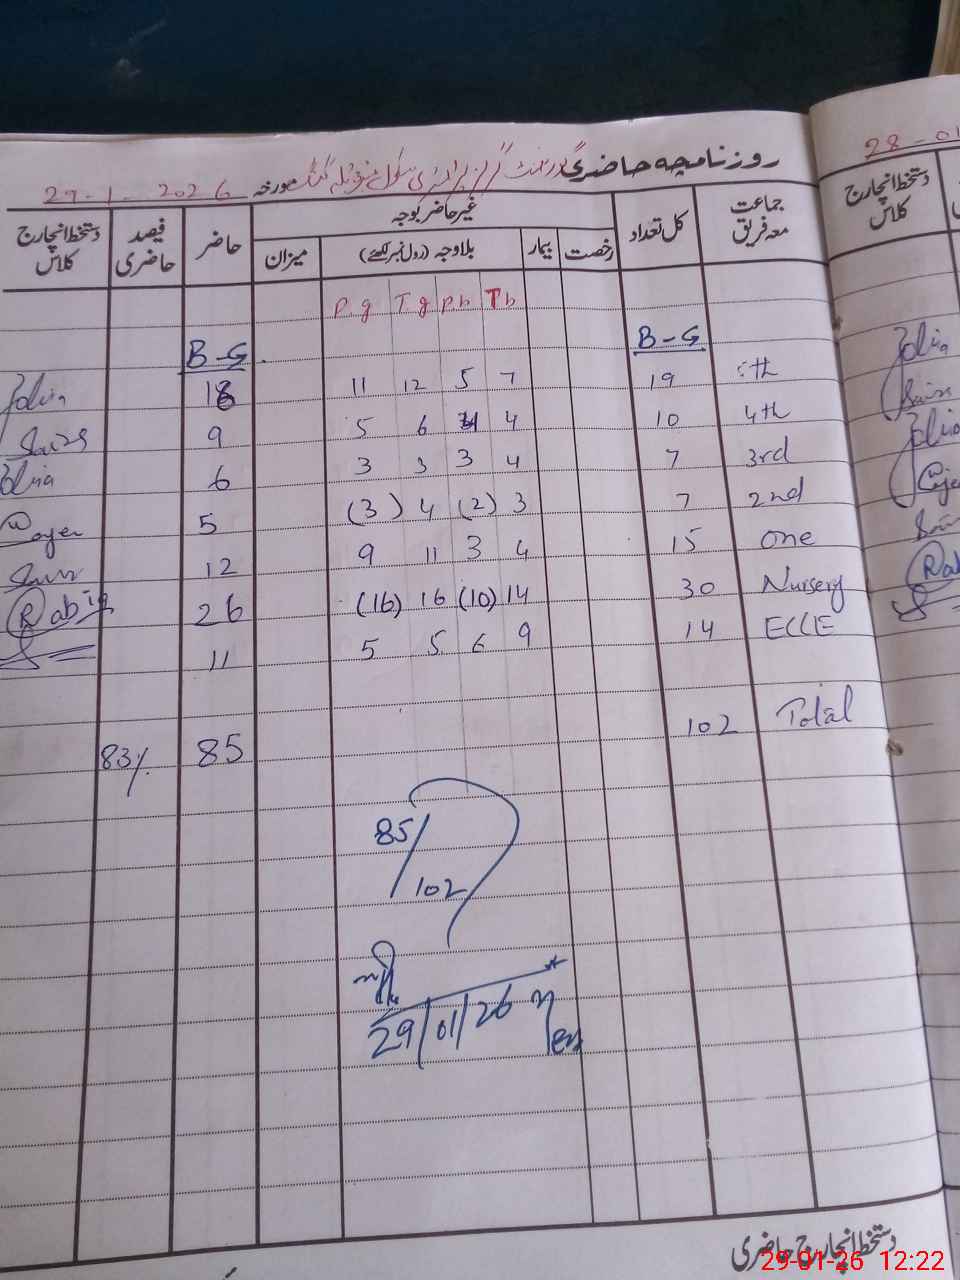 روزنامچہ حاضری گورنمنٹ گرلز پرائمری سکول
مورخہ 29-1-2026
28-01
جماعت معہ فریق
کل تعداد
غیر حاضر بوجہ
رخصت
بیمار
بلاوجہ (رول نمبر لکھئے)
میزان
حاضر
فیصد حاضری
دستخط انچارج کلاس
دستخط انچارج کلاس
P.g T.g P.b T.b
B-G B-G
18 11 12 5 7 19 5th
9 5 6 4 10 4th
6 3 3 3 4 7 3rd
5 (3) 4 (2) 3 7 2nd
12 9 11 3 4 15 One
Rabia 26 (16) 16 (10) 14 30 Nursery
11 5 5 6 9 14 ECCE
83% 85 102 Total
85/102
29/01/26
دستخط انچارج حاضری
29-01-26 12:22